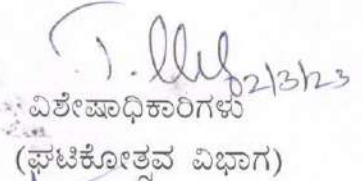 2/3/23
ವಿಶೇಷಾಧಿಕಾರಿಗಳು
(ಘಟಿಕೋತ್ಸವ ವಿಭಾಗ)